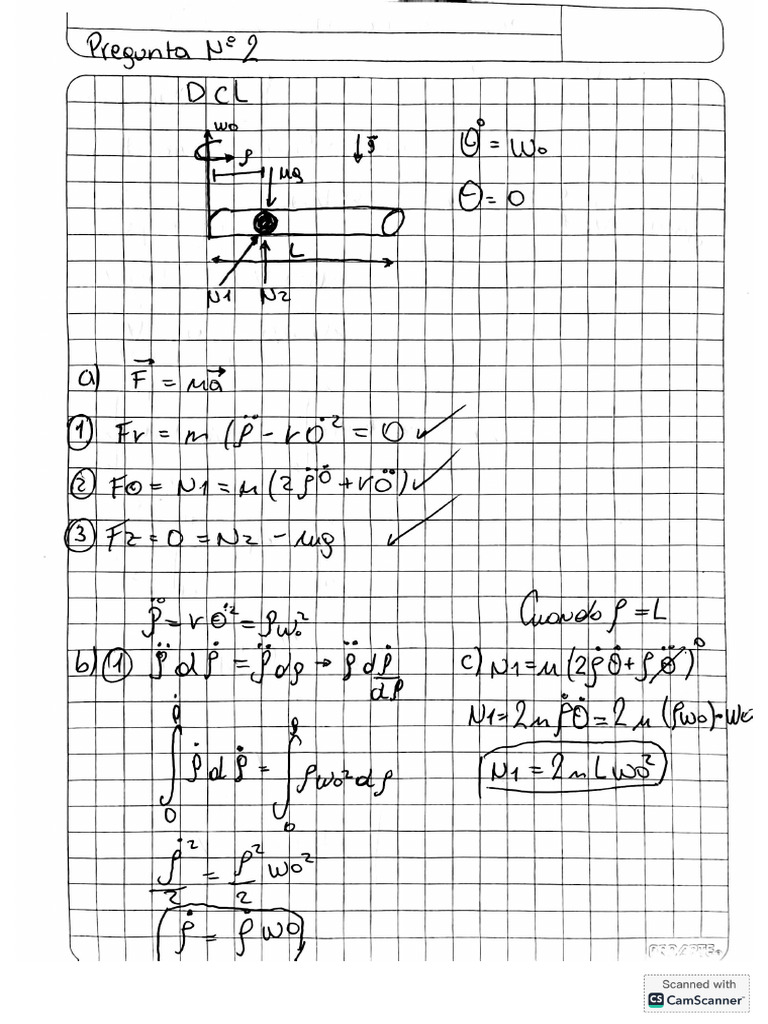 Pregunta Nº 2
DCL
ω0
ρ
mg
g⃗
θ̇ = ω0
θ̈ = 0
L
N1 N2
a) F⃗ = ma⃗
① Fr = m (ρ̈ - rθ̇² = 0 ✓
② Fθ = N1 = m (2ρ̇θ̇ + rθ̈) ✓
③ Fz = 0 = N2 - mg ✓
ρ̈ = rθ̇² = ρω0²
b) ① ρ̇ dρ̇ = ρ̈ dρ → ρ̈ dρ̇/dρ
∫₀^ρ̇ ρ̇ dρ̇ = ∫₀^ρ ρω0² dρ
ρ̇²/2 = ρ²/2 ω0²
ρ̇ = ρ ω0
Cuando ρ = L
c) N1 = m (2ρ̇θ̇ + ρθ̈)⁰
N1 = 2mρ̇θ̇ = 2m (ρω0)·ω0
N1 = 2mLω0²
Scanned with
CS CamScanner